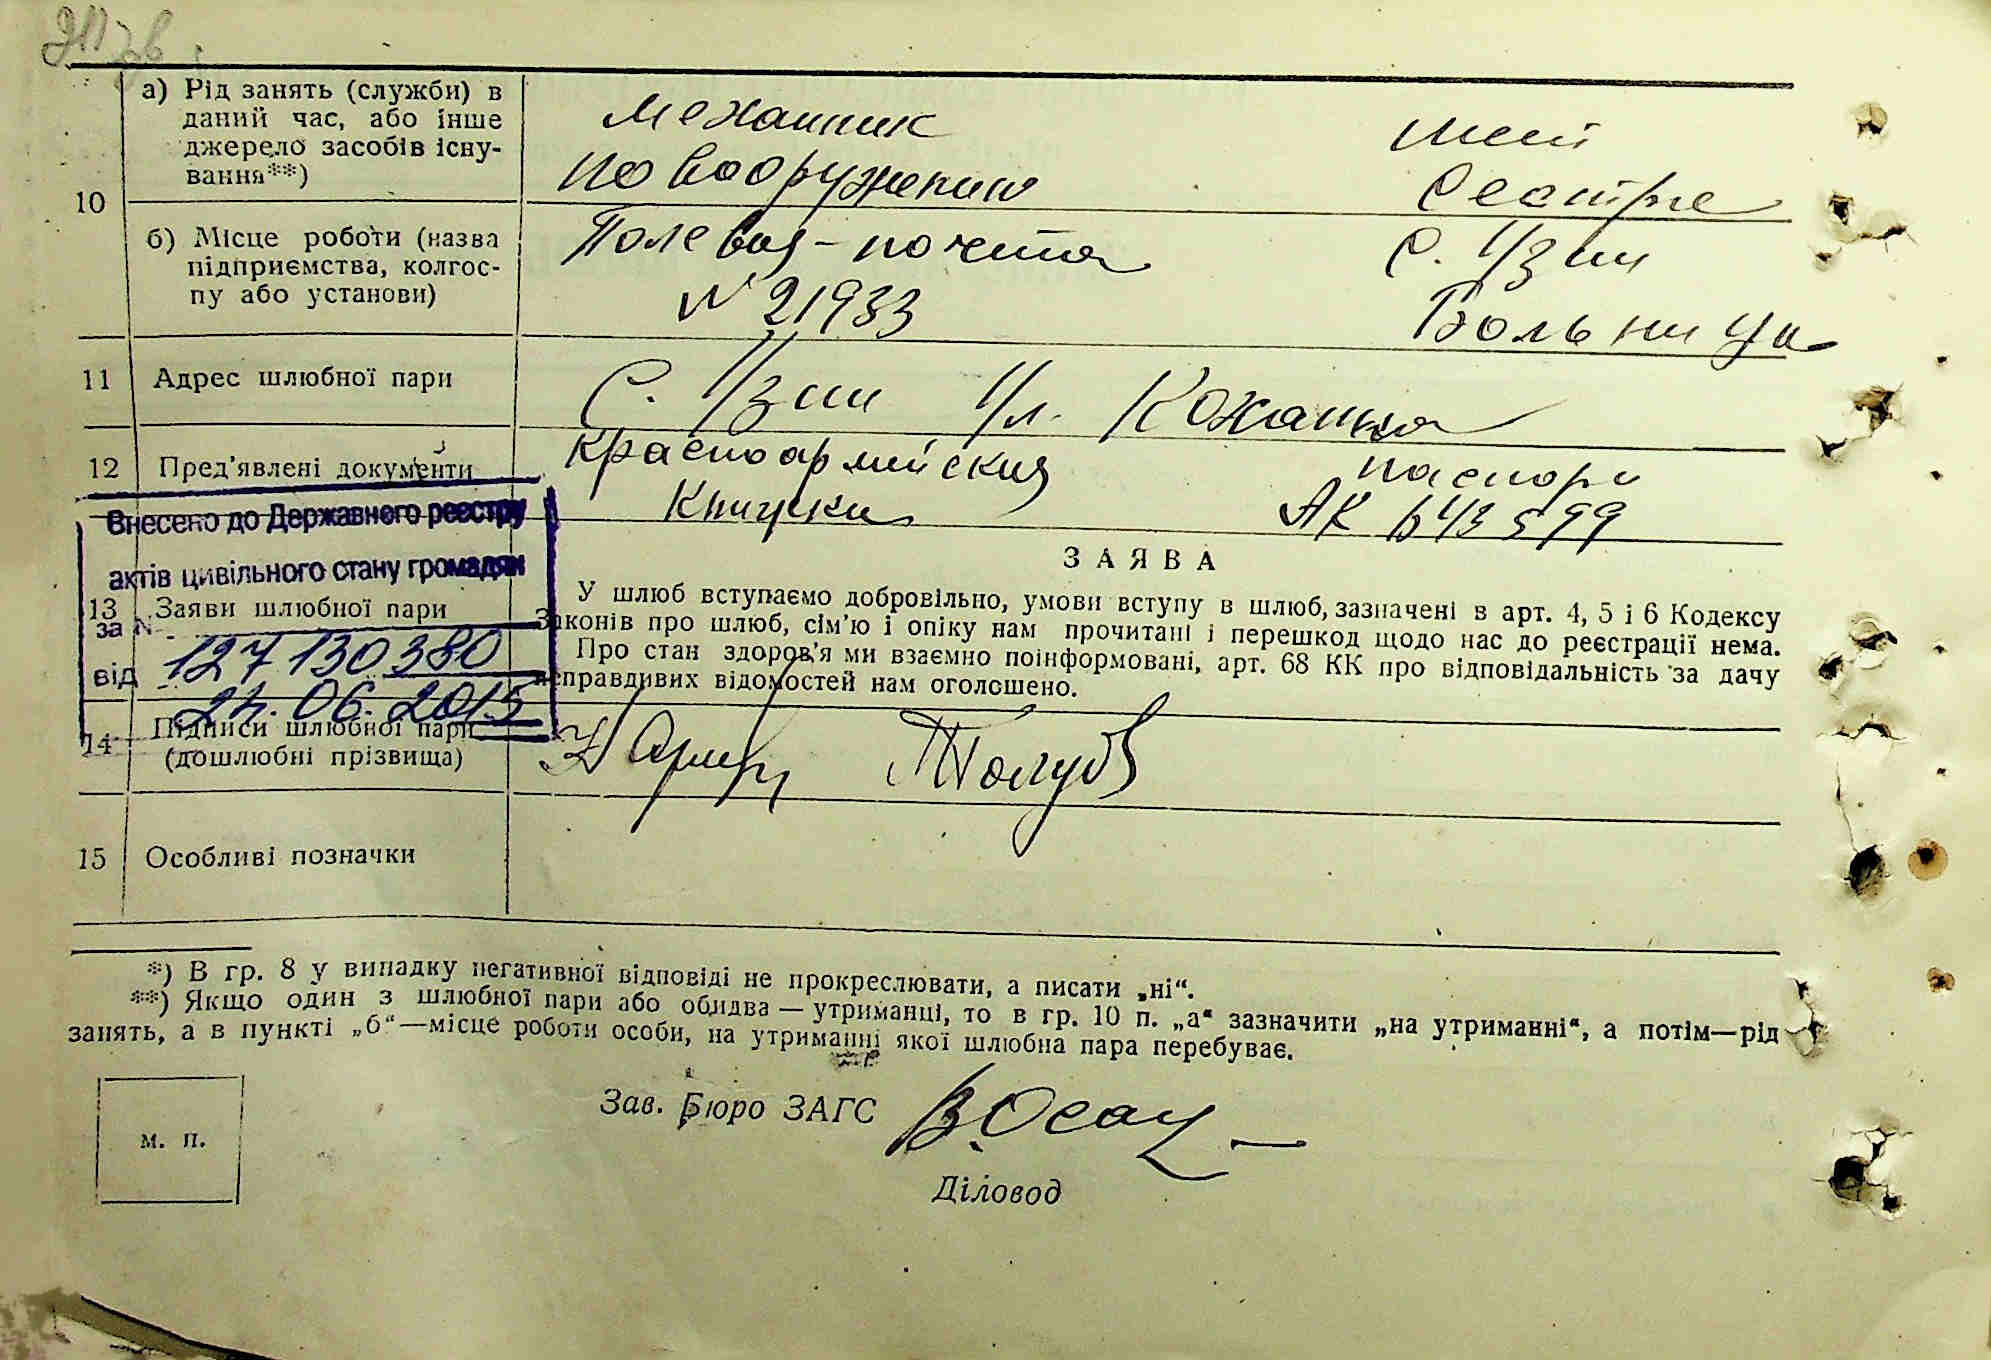 а) Рід занять (служби) в
даний час, або інше
джерело засобів існу-
вання**)
механик
по вооружению
мед
сестра
10
б) Місце роботи (назва
підприємства, колгос-
пу або установи)
Полевая - почта
N 21933
с. Узин
Больница
11 Адрес шлюбної пари
С. Узин ул. Кожанка
12 Пред'явлені документи
Красноармейская
Книжка
паспорт
АК
Внесено до Державного реєстру
актів цивільного стану громадян
за № 127130380
від 24.06.2015
13 Заяви шлюбної пари
ЗАЯВА
У шлюб вступаємо добровільно, умови вступу в шлюб, зазначені в арт. 4, 5 і 6 Кодексу
Законів про шлюб, сім'ю і опіку нам прочитані і перешкод щодо нас до реєстрації нема.
Про стан здоров'я ми взаємно поінформовані, арт. 68 КК про відповідальність за дачу
неправдивих відомостей нам оголошено.
14 Підписи шлюбної пари
(дошлюбні прізвища)
15 Особливі позначки
*) В гр. 8 у випадку негативної відповіді не прокреслювати, а писати „ні“.
**) Якщо один з шлюбної пари або обидва — утриманці, то в гр. 10 п. „а“ зазначити „на утриманні“, а потім—рід
занять, а в пункті „б“—місце роботи особи, на утриманні якої шлюбна пара перебуває.
м. п.
Зав. Бюро ЗАГС
Діловод